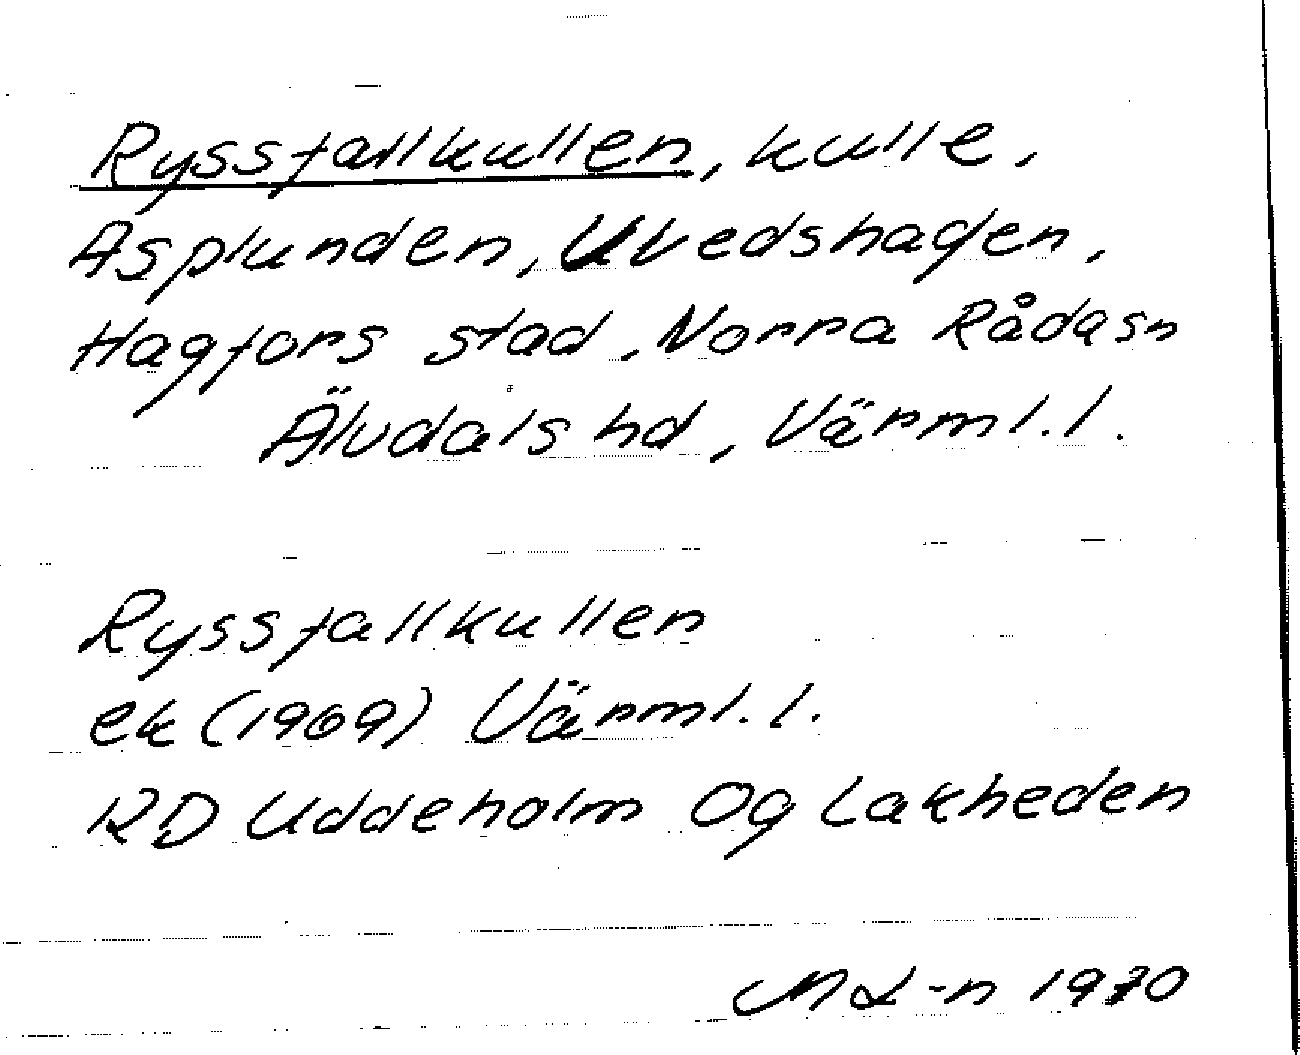 Ryssfallkullen, kulle,
Asplunden, Uvedshagen,
Hagfors stad, Norra Råda sn
Älvdals hd, Värml. l.
Ryssfallkullen
ek (1969) Värml. l.
RD Uddeholm Og Lakheden
ML-n 1970